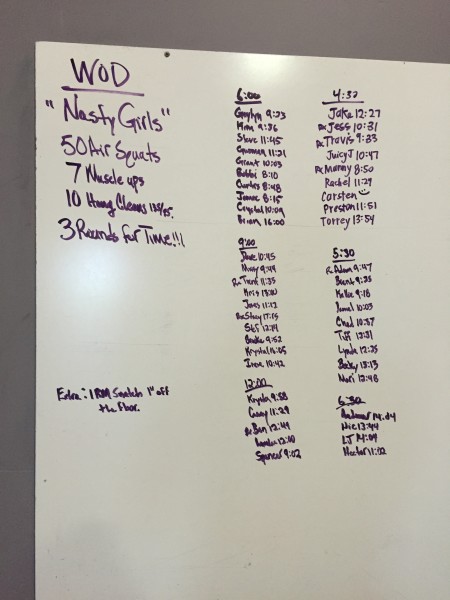 WOD
"Nasty Girls"
50 Air Squats
7 Muscle ups
10 Hang Cleans 135/95.
3 Rounds for Time!!!
Extra: 1 RM Snatch 1" off
the floor.
6:00
9:23
9:36
Steve 11:45
11:21
Grant 10:03
Bobbi 8:10
Curtis 8:48
8:15
Crystal 10:09
Brian 16:00
9:00
Dave 10:45
Missy 9:49
Rx 11:35
13:00
11:12
Rx Stacy 17:15
12:14
Brooke 9:52
Krystal 11:05
Irene 10:42
12:00
Krysta 9:58
Casey 11:29
Rx Ben 12:49
12:10
Spencer 9:02
4:30
Jake 12:27
Rx Jess 10:31
Rx Travis 9:33
Juicy J 10:47
Rx Manny 8:50
Rachel 11:29
Carsten
Preston 11:51
Torrey 13:54
5:30
Rx Adam 9:47
Brent 9:35
Katie 9:18
Jamal 10:03
Chad 10:37
Tiff 12:31
Lynda 12:25
Becky 13:13
Nori 12:48
6:30
14:04
13:44
LJ 14:09
Hector 11:02